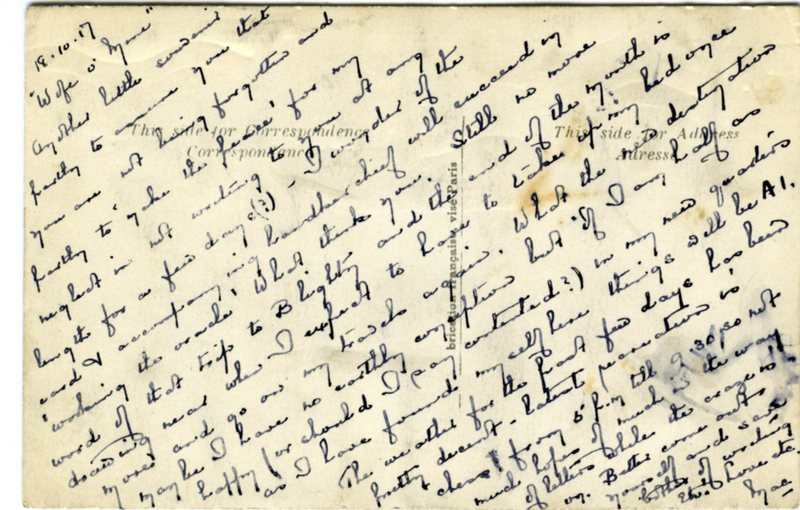 18.10.17
"Wife o' Mine"
Another little souvenir
partly to assure you that
you are not being forgotten and
partly to 'make the peace' for my
neglect in not writing to you at any
length for a few days (?) - I wonder if the
card & accompanying handkerchief will succeed in
'working the oracle'. What thinks you. Still no more
word of that trip to Blighty and the end of the month is
drawing near when I expect to have to take up my bed once
more and go on my travels again. What the new destination
maybe I have no earthly conception but if I am half as
happy (or should I say contented?) in my new quarters
as I have found myself here things will be A1.
The weather for the past few days has been
pretty decent. Latest is
chess! from 5 p.m till 9.30 so not
much hopes of much in the way
of letters while the craze is
on. Better come out
yourself and save
bother of writing
love etc.
Mac
This side for Correspondence
Correspondance
This side for Address
Adresse
brication française visé Paris